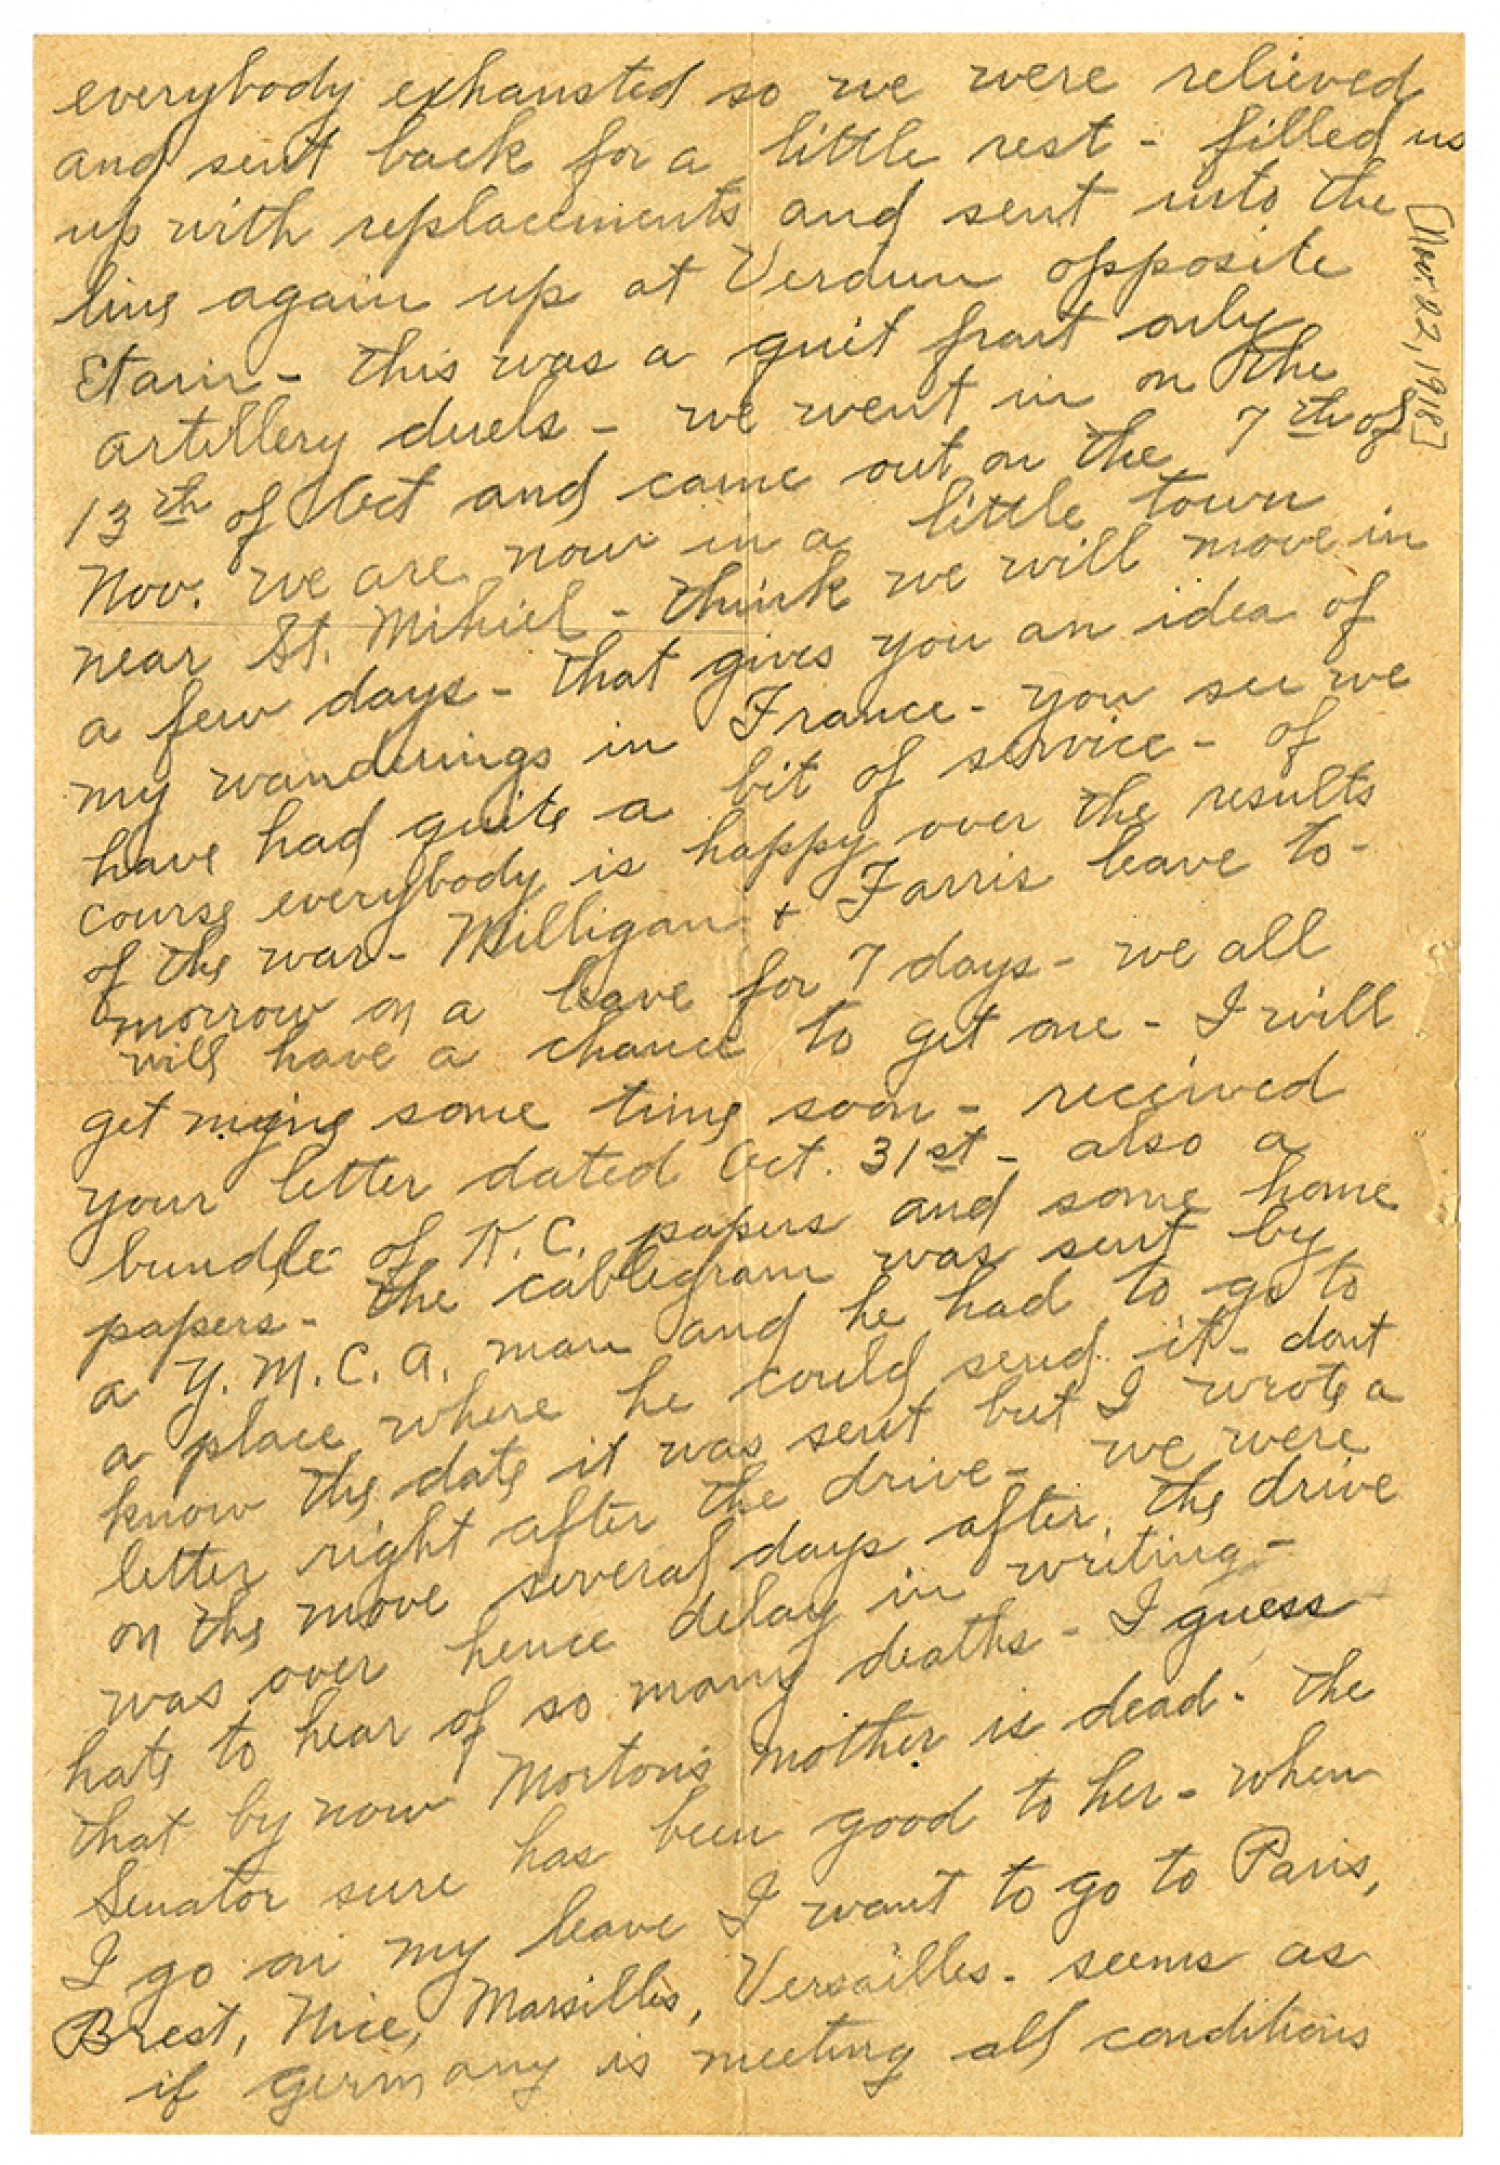 everybody exhausted so we were relieved
and sent back for a little rest - filled us
up with replacements and sent into the
line again up at Verdun opposite
Etain - this was a quit front only
artillery duels - we went in on the
13th of Oct and came out on the 7th of
Nov. we are now in a little town
near St. Mihiel - think we will move in
a few days - that gives you an idea of
my wanderings in France - you see we
have had quite a bit of service - of
course everybody is happy over the results
of the war - Milligan + Farris leave to-
morrow on a leave for 7 days - we all
will have a chance to get one - I will
get mine some time soon - received
your letter dated Oct. 31st - also a
bundle of K.C. papers and some home
papers - the cablegram was sent by
a Y.M.C.A. man and he had to go to
a place where he could send it - dont
know the date it was sent but I wrote a
letter right after the drive - we were
on the move several days after the drive
was over hence delay in writing -
hate to hear of so many deaths - I guess
that by now Morton's mother is dead. the
Senator sure has been good to her - when
I go on my leave I want to go to Paris,
Brest, Nice, Marsilles, Versailles - seems as
if Germany is meeting all conditions
[Nov. 22, 1918]